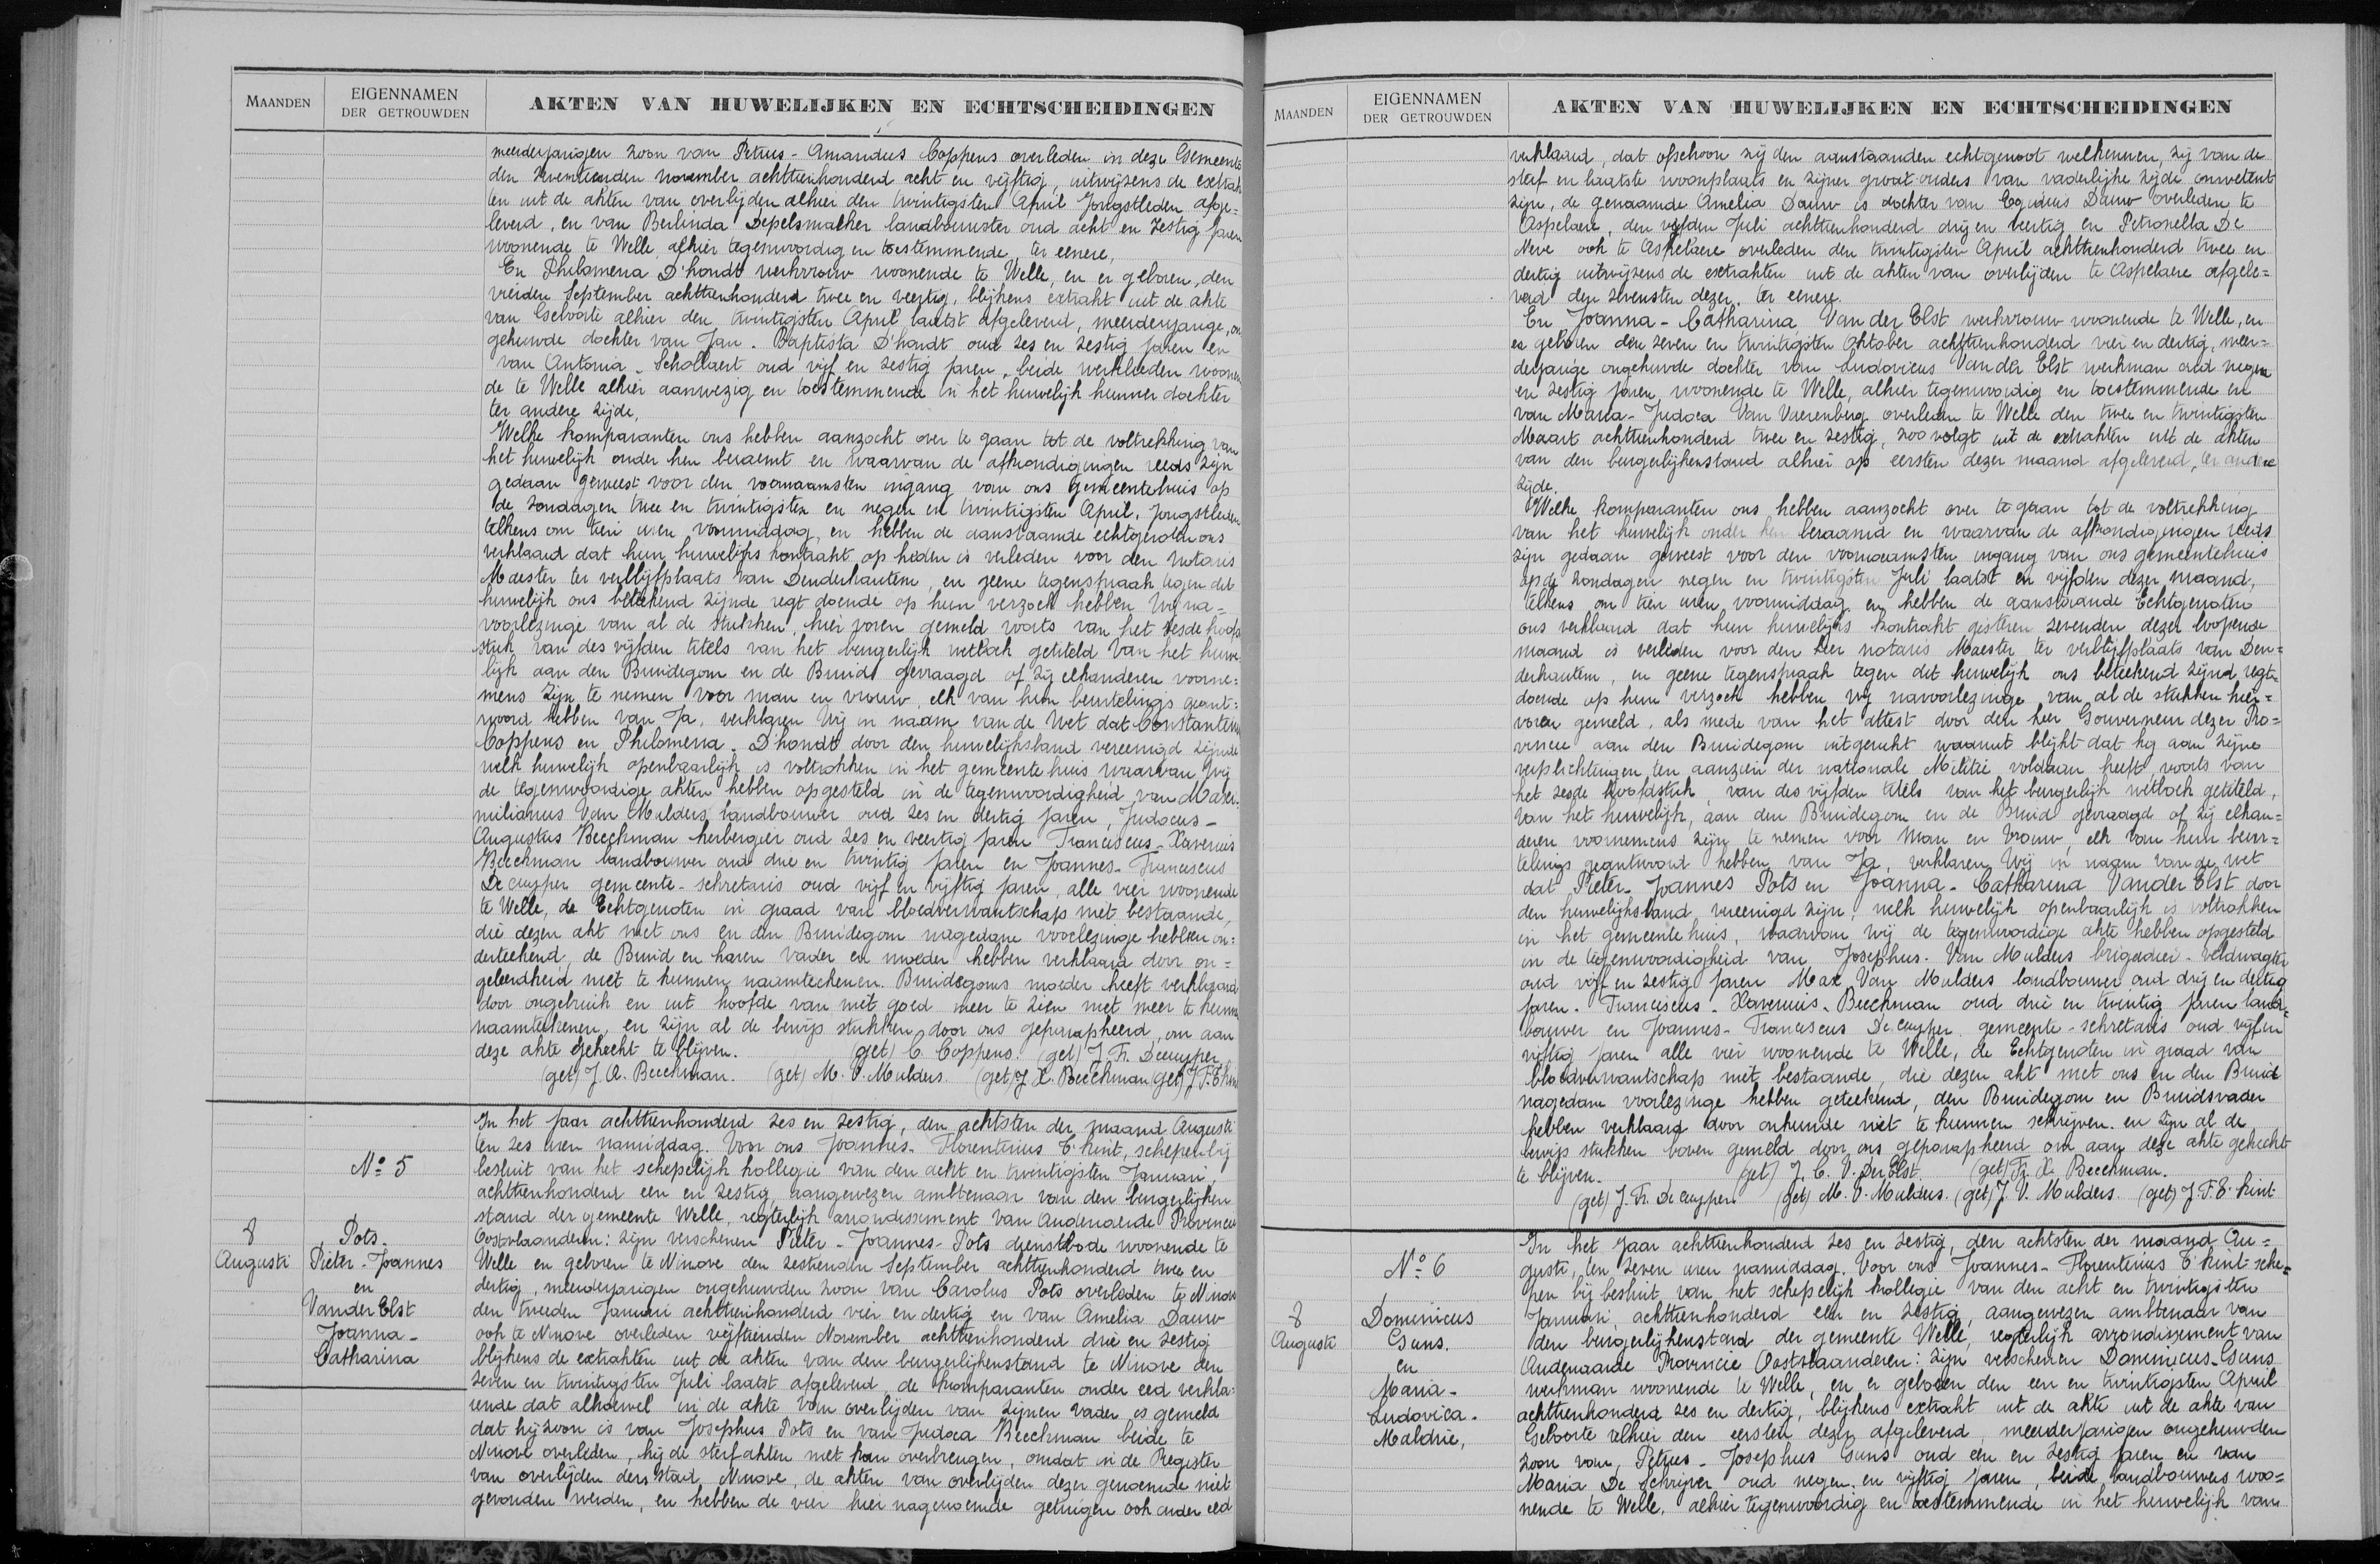 MAANDEN
EIGENNAMEN
DER GETROUWDEN
AKTEN VAN HUWELIJKEN EN ECHTSCHEIDINGEN
meerderjarigen zoon van Petrus-Amandus Coppens overleden in deze Gemeente
den zeventienden november achttienhonderd acht en vijftig, uitwijzens de extrak
ten uit de akten van overlijden alhier den twintigsten April Jongstleden afge=
leverd, en van Berlinda Depelsmaeker landbouwster oud acht en zestig Jaren
woonende te Welle, alhier tegenwoordig en toestemmende, ter eenere,
En Philomena D'hondt werkvrouw woonende te Welle, en er geboren, den
vierden September achttienhonderd twee en veertig, blijkens extrakt uit de akte
van Geboorte alhier den twintigsten April laatst afgeleverd, meerderjarige, on
gehuwde dochter van Jan-Baptista D'hondt oud zes en zestig Jaren en
van Antonia-Schollaert oud vijf en zestig Jaren, beide werklieden woonen
de te Welle alhier aanwezig en toestemmende in het huwelijk hunner dochter
ter andere zijde,
Welke komparanten ons hebben aanzocht over te gaan tot de voltrekking van
het huwelijk onder hen beraemt en waarvan de afkondigingen reeds zijn
gedaan geweest voor den voornaamsten ingang van ons gemeentehuis op
de zondagen twee en twintigsten en negen en twintigsten April Jongstleden
telkens om tien uren voormiddag, en hebben de aanstaande echtgenoten ons
verklaard dat hun huwelijks kontrakt op heden is verleden voor den notaris
Maester ter verblijfplaats van Denderhautem, en geene tegenspraak tegen dit
huwelijk ons beteekend zijnde regt doende op hun verzoek hebben wij na=
voorlezinge van al de stukken, hier voren gemeld voorts van het zesde hoofd
stuk van des vijfden titels van het burgerlijk wetboek getiteld van het huwe
lijk aan den Bruidegom en de Bruid gevraagd of zij elkanderen voorne=
mens zijn te nemen voor man en vrouw, elk van hun beurtelings geant=
woord hebben van Ja, verklaren wij in naam van de Wet dat Constantinus
Coppens en Philomena-D'hondt door den huwelijksband vereenigd zijnde
welk huwelijk openbaarlijk is voltrokken in het gemeente huis waarvan wij
de tegenwoordige akten hebben opgesteld in de tegenwoordigheid van Maxi-
milianus Van Mulders landbouwer oud zes en dertig Jaren, Judocus-
Augustus Beeckman herbergier oud zes en veertig Jaren Franciscus-Xaverius
Beeckman landbouwer oud drie en twintig Jaren en Joannes-Franciscus
De cuyper gemeente-sekretaris oud vijf en vijftig Jaren, alle vier woonende
te Welle, de Echtgenoten in graad van bloedverwantschap niet bestaande,
die dezen akt met ons en den Bruidegom nagedane voorlezinge hebben on=
derteekend, de Bruid en haren Vader en moeder hebben verklaard door on=
geleerdheid niet te kunnen naamteekenen. Bruidegoms moeder heeft verklaard
door ongebruik en uit hoofde van niet goed meer te zien niet meer te kunnen
naamteekenen, en zijn al de bewijs stukken door ons geparapheerd, om aan
deze akte gehecht te blijven. (get) C. Coppens. (get) J. Fr. Decuyper
(get) J A. Beeckman. (get) M. V. Mulders. (get) J X. Beeckman (get) J F. T'kint
No 5
8
Augusti
Pots
Pieter-Joannes
en
Vander Elst
Joanna-
Catharina
In het Jaar achttienhonderd zes en zestig, den achtsten der maand Augusti
ten zes uren namiddag. Voor ons Joannes-Florentinus T'kint, schepen bij
besluit van het schepelijk kollegie van den acht en twintigsten Januari,
achttienhonderd een en zestig, aangewezen ambtenaar van den burgerlijken
stand der gemeente Welle, regterlijk arrondissement van Audenaerde Provincie
Oostvlaanderen: zijn verschenen Pieter-Joannes-Pots dienstbode woonende te
Welle en geboren te Ninove den zestienden September achttienhonderd twee en
dertig, meerderjarigen ongehuwden zoon van Carolus Pots overleden te Ninove
den tweeden Januari achttienhonderd vier en dertig en van Amelia Dauw
ook te Ninove overleden vijftienden November achttienhonderd drie en zestig
blijkens de extrakten uit de akten van den burgerlijkenstand te Ninove den
zeven en twintigsten Juli laatst afgeleverd, de komparanten onder eed verkla=
rende dat alhoewel in de akte van overlijden van zijnen vader is gemeld
dat hij zoon is van Josephus Pots en van Judoca Beeckman beide te
Ninove overleden, hij de sterfakten niet kan overbrengen, omdat in de Register
van overlijden ders stad, Ninove, de akten van overlijden dezer genoemde niet
gevonden werden, en hebben de vier hier nagenoemde getuigen ook onder eed
MAANDEN
EIGENNAMEN
DER GETROUWDEN
AKTEN VAN HUWELIJKEN EN ECHTSCHEIDINGEN
verklaard, dat ofschoon zij den aanstaanden echtgenoot welkennen, zij van de
sterf en laatste woonplaats en zijner groot-ouders van vaderlijke zijde onwetent
zijn, de genaamde Amelia Dauw is dochter van Egidius Dauw overleden te
Aspelaere, den vijfden Juli achttienhonderd drij en veertig en Petronella De
Neve ook te Aspelaere overleden den twintigsten April achttienhonderd twee en
dertig uitwijzens de extrakten uit de akten van overlijden te Aspelaere afgele=
verd den zevensten dezer. ter eenere.
En Joanna-Catharina Van der Elst werkvrouw woonende te Welle, en
er geboren den zeven en twintigsten Oktober achttienhonderd vier en dertig, meer=
derjarige ongehuwde dochter van Ludovicus Van der Elst werkman oud negen
en zestig Jaren, woonende te Welle, alhier tegenwoordig en toestemmende en
van Maria-Judoca Van Vaerenberg overleden te Welle den twee en twintigsten
Maart achttienhonderd twee en zestig, zoo volgt uit de extrakten uit de akten
van den burgerlijkenstand alhier op eersten dezer maand afgeleverd, ter andere
zijde.
Welke komparanten ons hebben aanzocht over te gaan tot de voltrekking
van het huwelijk onder hen beraamd en waarvan de afkondigingen reeds
zijn gedaan geweest voor den voornaamsten ingang van ons gemeentehuis
op de zondagen negen en twintigsten Juli laatst en vijfden dezer maand,
telkens om tien uren voormiddag en hebben de aanstaande Echtgenoten
ons verklaard dat hun huwelijks kontrakt gisteren zevenden dezer loopende
maand is verleden voor den heer notaris Maester ter verblijfplaats van Den=
derhautem, en geene tegenspraak tegen dit huwelijk ons beteekend zijnd regt-
doende op hun verzoek hebben wij navoorlezinge van al de stukken hier=
voren gemeld, als mede van het attest door den heer Gouverneur dezer Pro=
vincie aan den Bruidegom uitgereikt waaruit blijkt dat hij aan zijne
verplichtingen ten aanzien der nationale Militie voldaan heeft, voorts van
het zesde hoofdstuk, van des vijfden titels van het burgerlijk wetboek getiteld,
van het huwelijk, aan den Bruidegom en de Bruid gevraagd of zij elkan=
deren voornemens zijn te nemen voor Man en Vrouw, elk van hun beur=
telings geantwoord hebben van Ja, verklaren wij in naam van de wet
dat Pieter-Joannes Pots en Joanna-Catharina Vander Elst door
den huwelijksband vereenigd zijn, welk huwelijk openbaarlijk is voltrokken
in het gemeente huis, waarvan wij de tegenwoordige akte hebben opgesteld
in de tegenwoordigheid van Josephus-Van Mulders brigadier-veldwagter
oud vijf en zestig Jaren Max Van Mulders landbouwer oud drij en dertig
Jaren. Franciscus-Xaverius-Beeckman oud drie en twintig Jaren land=
bouwer en Joannes-Franciscus De cuyper gemeente-sekretaris oud vijf en
vijftig Jaren alle vier woonende te Welle, de Echtgenoten in graad van
bloedverwantschap niet bestaande, die dezen akt met ons en den Bruid
nagedane voorlezinge hebben geteekend, den Bruidegom en Bruidsvader
hebben verklaard door onkunde niet te kunnen schrijven. en zijn al de
bewijs stukken boven gemeld door ons geparapheerd om aan deze akte gehecht
te blijven. (get) J. C. V. Der Elst. (get) Fr. X. Beeckman.
(get) J. Fr. De cuyper. (get) M. V. Mulders. (get) J. V. Mulders (get) J. F. T'kint
No 6
8
Augusti
Dominicus
Guns.
en
Maria-
Ludovica-
Maldrie,
In het Jaar achttienhonderd zes en zestig, den achtsten der maand Au=
gusti, ten zeven uren namiddag. Voor ons Joannes-Florentinus T'kint sche=
pen bij besluit van het schepelijk kollegie van den acht en twintigsten
Januari, achttienhonderd een en zestig, aangewezen ambtenaar van
den burgerlijkenstand der gemeente Welle, regterlijk arrondissement van
Audenaarde Provincie Oostvlaanderen: zijn verschenen Dominicus-Guns
werkman woonende te Welle, en er geboren den een en twintigsten April
achttienhonderd zes en dertig, blijkens extrakt uit de akte uit de akte van
Geboorte alhier den eersten dezer afgeleverd, meerderjarigen ongehuwden
zoon van Petrus-Josephus Guns oud een en zestig Jaren en van
Maria De Schrijver oud negen en vijftig Jaren, beide landbouwers woo=
nende te Welle, alhier tegenwoordig en toestemmende in het huwelijk van